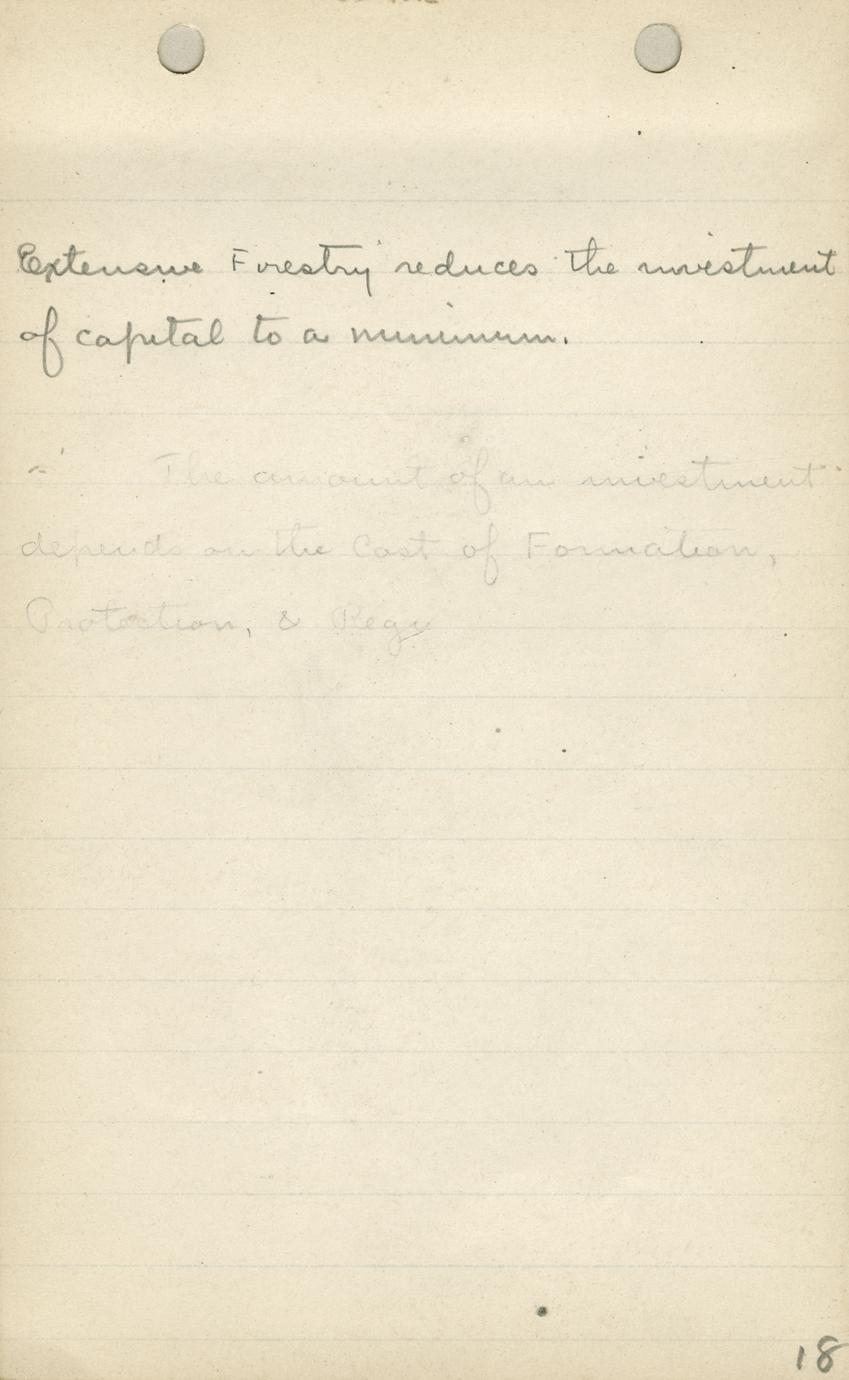 Extensive Forestry reduces the investment
of capital to a minimum.
The amount of an investment
depends on the Cost of Formation,
Protection, & Regu
18